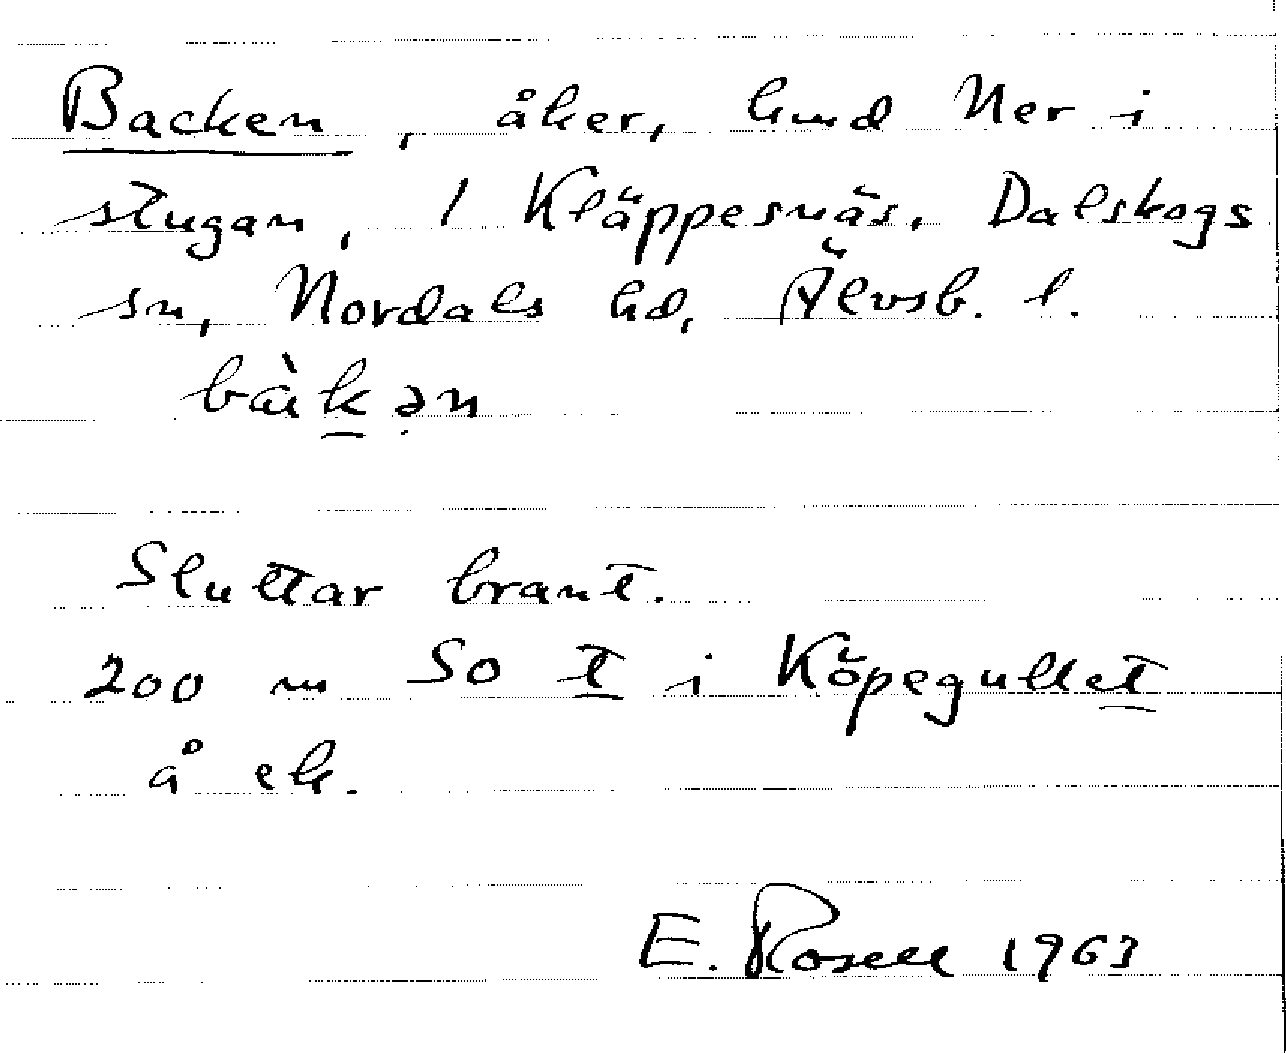 Backen, åker, hmd Ner i
stugan, 1 Kläppesnäs, Dalskogs
sn, Nordals hd, Älvsb. l.
bàkən
Sluttar brant.
200 m SO t i Köpegullet
å ek.
E. Rosell 1963